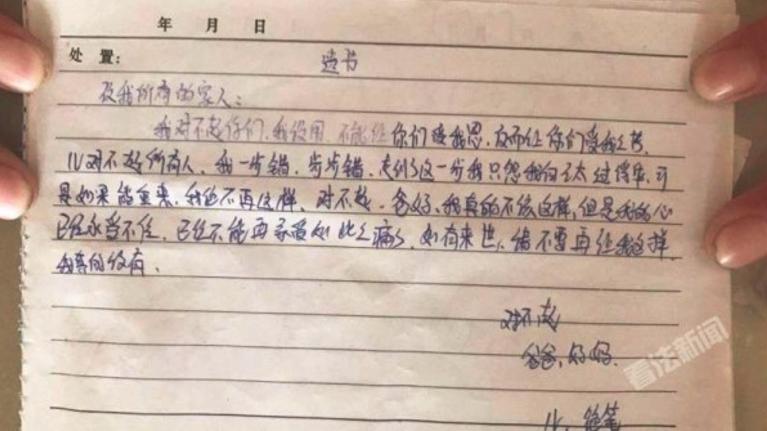 年 月 日
处 置: 遗书
及我所有的家人:
我对不起你们,我没用,不能让你们受我恩,反而让你们受我之苦,
儿对不起所有人,我一步错,步步错,走到了这一步我只怨我自己太过
是如果能重来,我绝不再这样,对不起,爸妈,我真的不该这样,但是我的心
已经承当不住,已经不能再承受如此之痛了,如有来世,请不要再让我这样,
我真的没有,
对不起
爸爸,妈妈.
儿,绝笔
看法新闻